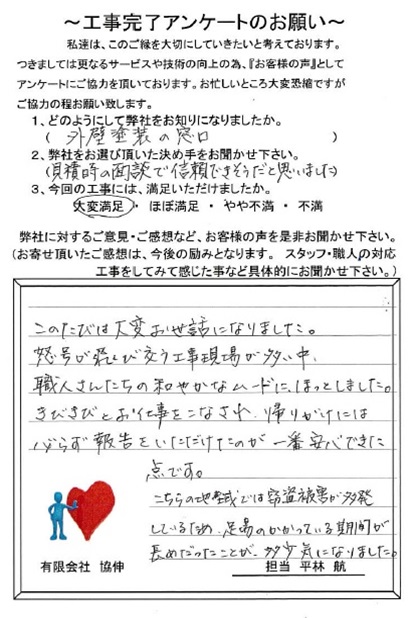 ～工事完了アンケートのお願い～
私達は、このご縁を大切にしていきたいと考えております。
つきましては更なるサービスや技術の向上の為、『お客様の声』として
アンケートにご協力を頂いております。お忙しいところ大変恐縮ですが
ご協力の程お願い致します。
1、どのようにして弊社をお知りになりましたか。
( 外壁塗装の窓口 )
2、弊社をお選び頂いた決め手をお聞かせ下さい。
(見積時の面談で信頼できそうだと思いました)
3、今回の工事には、満足いただけましたか。
大変満足 ・ ほぼ満足 ・ やや不満 ・ 不満
弊社に対するご意見・ご感想など、お客様の声を是非お聞かせ下さい。
(お寄せ頂いたご感想は、今後の励みとなります。 スタッフ・職人の対応
工事をしてみて感じた事など具体的にお聞かせ下さい。)
このたびは大変お世話になりました。
怒号が飛び交う工事現場が多い中、
職人さんたちの和やかなムードに、ほっとしました。
きびきびとお仕事をこなされ、帰りがけには
必らず報告をいただけたのが一番安心できた
点です。
こちらの地域では窃盗被害が多発
しているため、足場のかかっている期間が
長めだったことが、多少気になりました。
有限会社 協伸
担当 平林 航